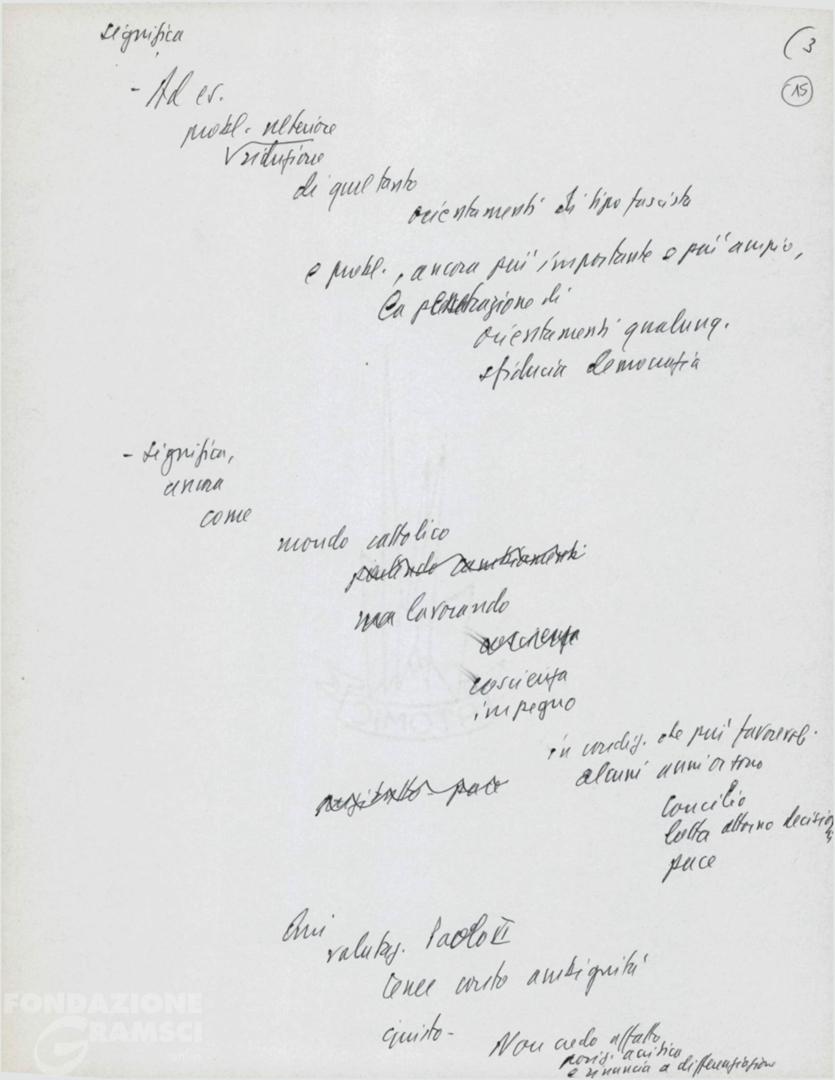 significa
(3
15
- Ad es.
probl. ulteriore
riduzione
di quel tanto
orientamenti di tipo fascista
e probl., ancora più importante e più ampio,
la penetrazione di
orientamenti qualunq.
sfiducia democrazia
- significa,
ancora
come
mondo cattolico
cambiamenti
ma lavorando
coscienza
coscienza
impegno
in condiz. che più favorevol.
alcuni anni or sono
pace
Concilio
lotta attorno decisioni
pace
Qui
valutaz. Paolo VI
tener conto ambiguità
giusto -
Non credo affatto
posiz. acritica
e rinuncia a differenziazione
FONDAZIONE
GRAMSCI